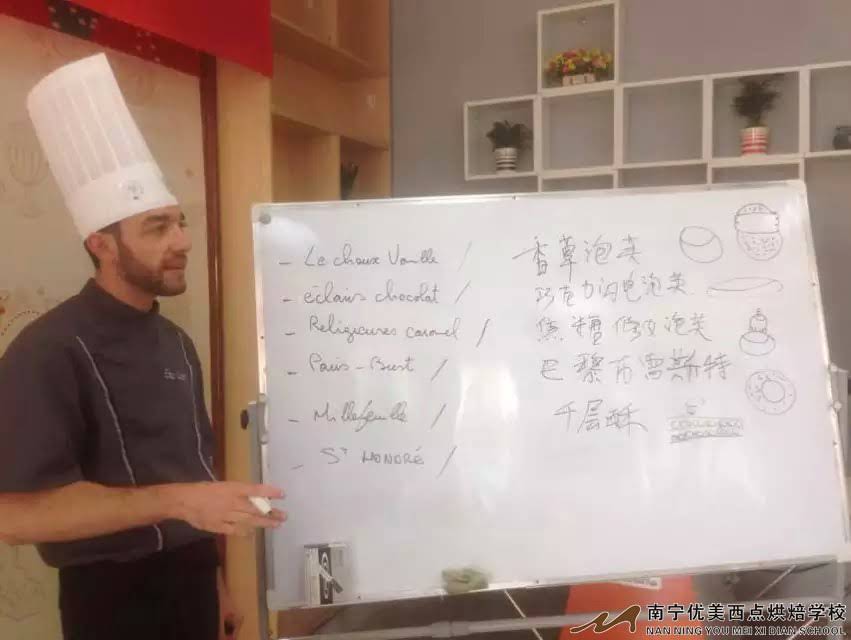 - Le choux Vanille / 香草泡芙
- éclairs chocolat / 巧克力闪电泡芙
- Religieuses caramel / 焦糖修女泡芙
- Paris-Brest / 巴黎布雷斯特
- Millefeuille / 千层酥
- St HONORÉ /
南宁优美西点烘焙学校
NAN NING YOU MEI XI DIAN SCHOOL